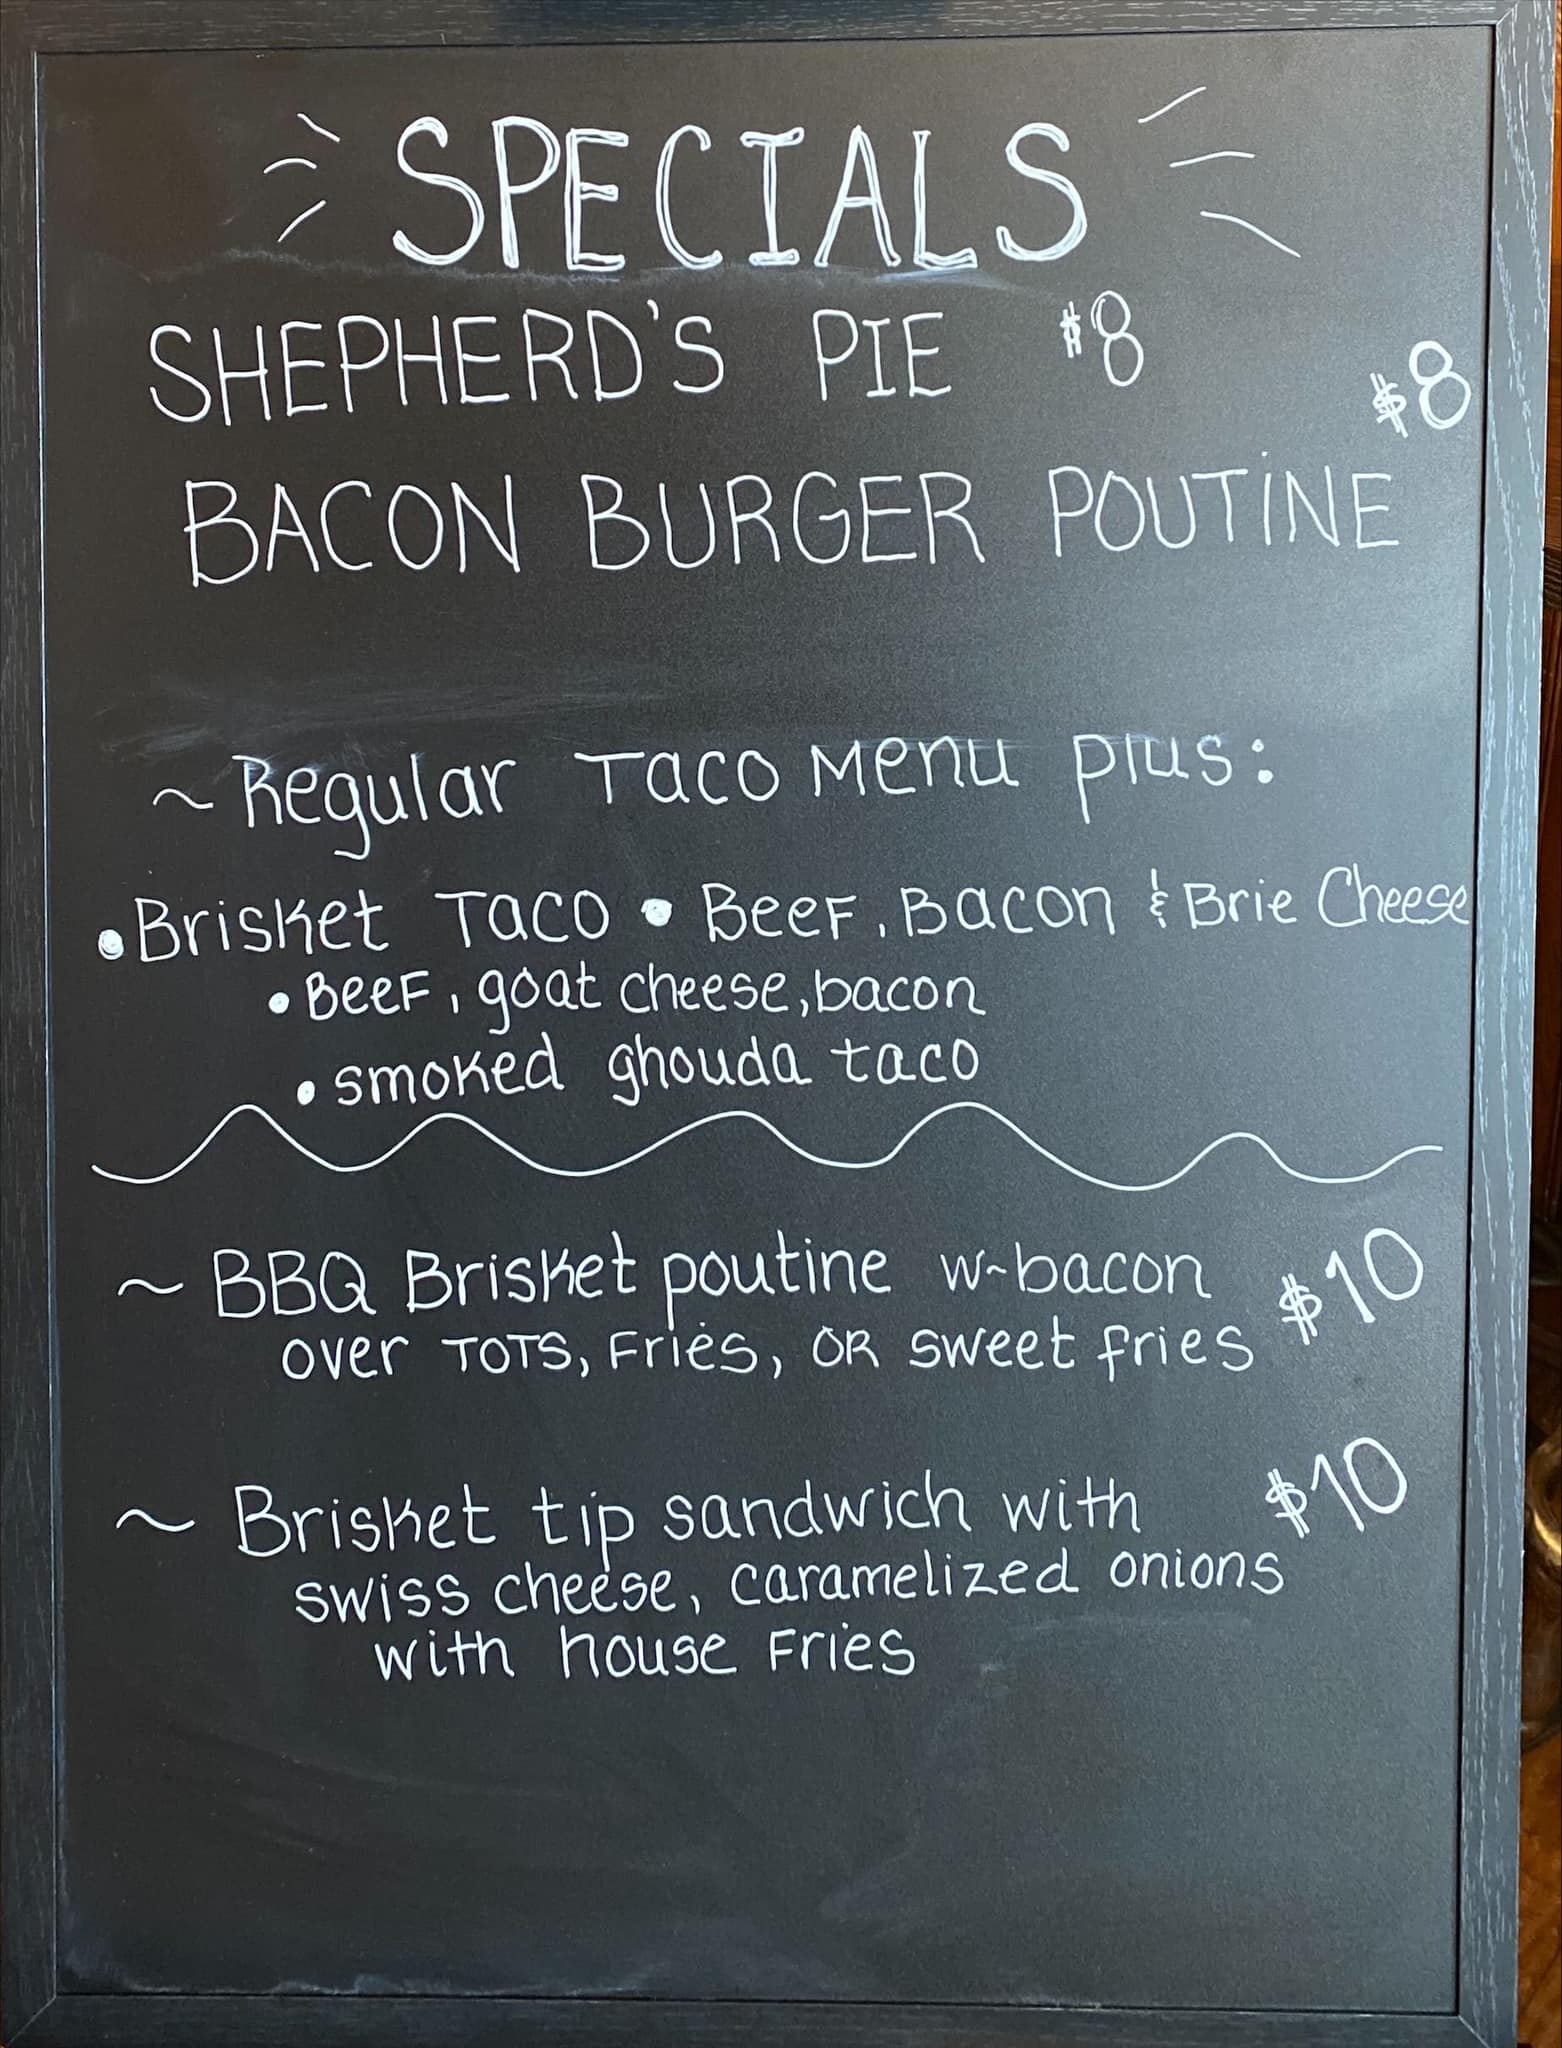 SPECIALS
SHEPHERD'S PIE $8
$8
BACON BURGER POUTINE
~ Regular Taco Menu plus:
• Brisket Taco • Beef, Bacon & Brie Cheese
• Beef, goat cheese, bacon
• smoked ghouda taco
~ BBQ Brisket poutine w~bacon $10
over TOTS, Fries, OR sweet fries
~ Brisket tip sandwich with $10
swiss cheese, caramelized onions
with house Fries